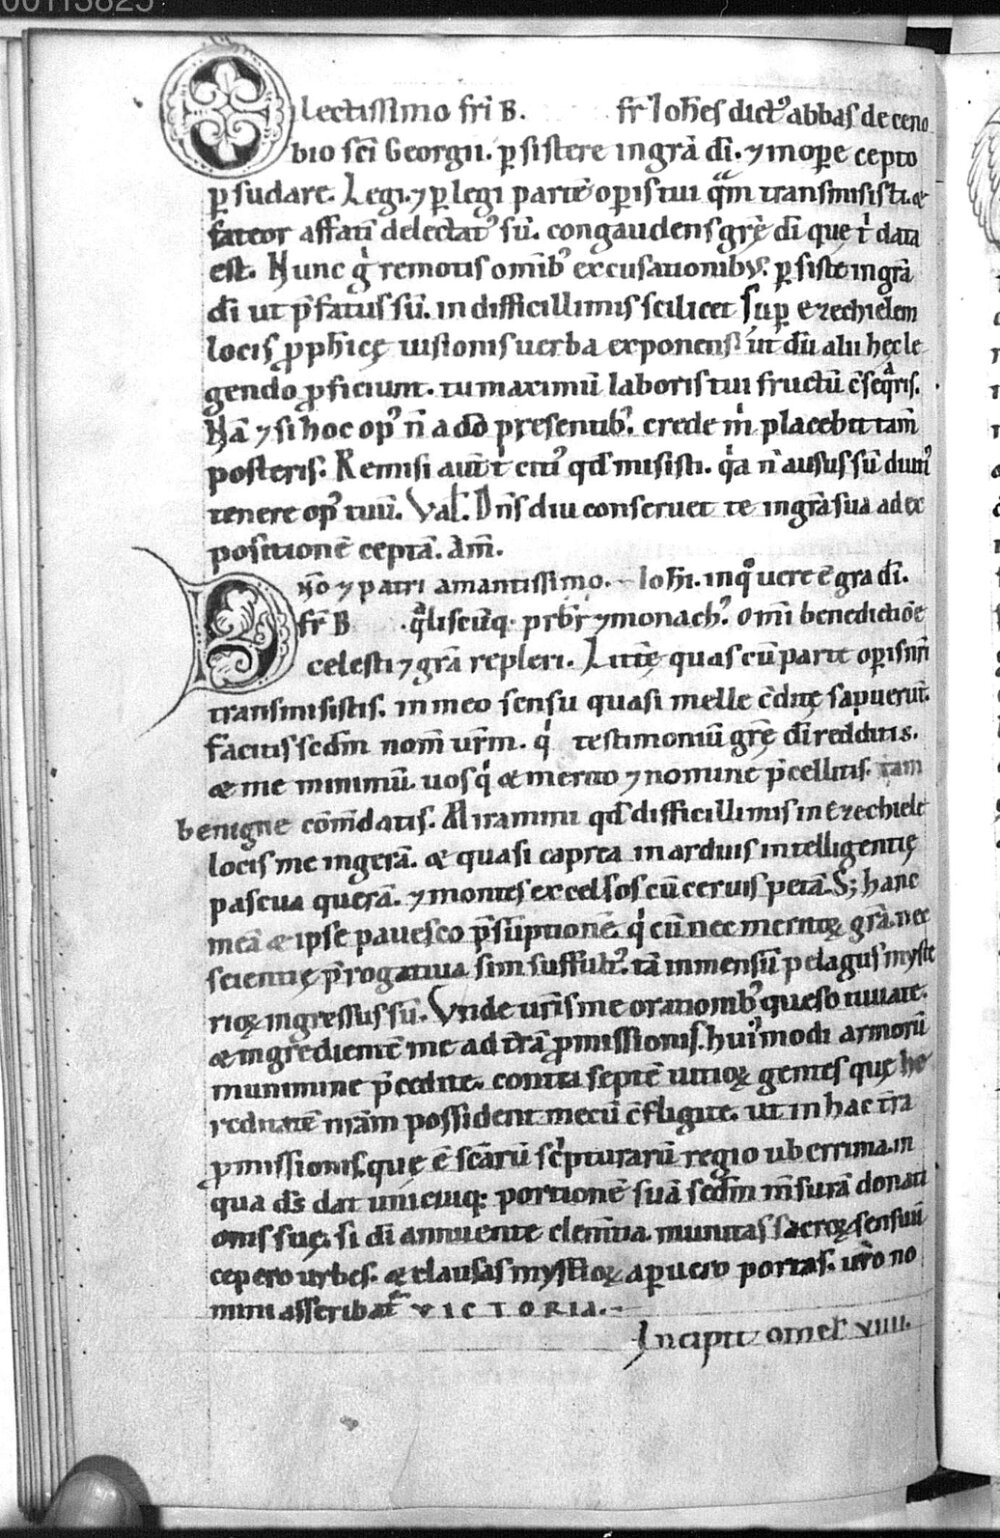 00113825
Dilectissimo fr̄i B. fr̄ Ioh̄es dict' abbas de ceno
bio sc̄i Georgii. ꝑsistere in grā dī. ⁊ in oꝑe cepto
ꝑsudare. Legi. ⁊ ꝑlegi partē oꝑis tui quā m transmisisti. &
fateor affatī delectat' sū. congaudens grę̄ dī que t̄ data
est. Nunc g̊ remotis om̄ib' excusationibus. ꝑsiste in grā
dī ut p̄fatus sū. in difficillimis scilicet sup̱ ezechielem
locis ꝓph̄icę uisionis uerba exponens. ut dū alii hęc le
gendo ꝓficiunt. tu maximū laboris tui fructū c̄seq̄ris.
Nā ⁊ si hoc op' n̄ adeo presentib'. crede m̄ placebit tam̄
posteris. Remisi aut̄ t̄ cit' qd̄ misisti. q̄a n̄ ausus sū diuti'
tenere op' tuū. Val. Dn̄s diu conseruet te in grā sua ad ex
positionē ceptā. Am̄.
Dn̄o ⁊ patri amantissimo. Ioh̄i. in quo uere ē gra dī.
fr̄ B. qualiscūq. prb̄r ⁊ monach'. om̄i benedictiōe
celesti ⁊ grā repleri. Littę quas cū parte oꝑis nr̄i
transmisistis. in meo sensu quasi melle c̄ditę sapuerūt.
Facitis scd̄m nom̄ ur̄m. qi testimoniū grę̄ dī redditis.
& me minimū. uos qi & merito ⁊ nomine p̄cellitis. tam
benigne cōm̄datis. Miramini qd̄ difficillimis in Ezechiele
locis me ingerā. & quasi caprea in arduis intelligentię
pascua querā. ⁊ montes excelsos cū ceruis petā. S; hanc
meā & ipse pauesco p̄sūptionē. qi cū nec meritoꝝ grā. nec
scientię p̄rogatiua sim suffult'. tā inmensū pelagus myste
rioꝝ ingressus sū. Vnde ur̄is me orationib' queso iuuate.
& ingredientē me ad tr̄ā ꝓmissionis. hui'modi armorū
munimine p̄cedite. contra septē uitioꝝ gentes quę he
reditatē nr̄am possident mecū c̄fligite. ut in hac tr̄a
ꝓmissionis. quę ē sc̄arū sc̄pturarū regio uberrima. in
qua ds̄ dat unicuiq; portionē suā scd̄m m̄surā donati
onis suę. si dī annuente clem̄tia. munitas sacroꝝ sensuū
cepero urbes. & clausas mystioꝝ aꝑuero portas. ur̄o no
mini asscribat̄ VICTORIA.
Incipit omel̄ VIIII.